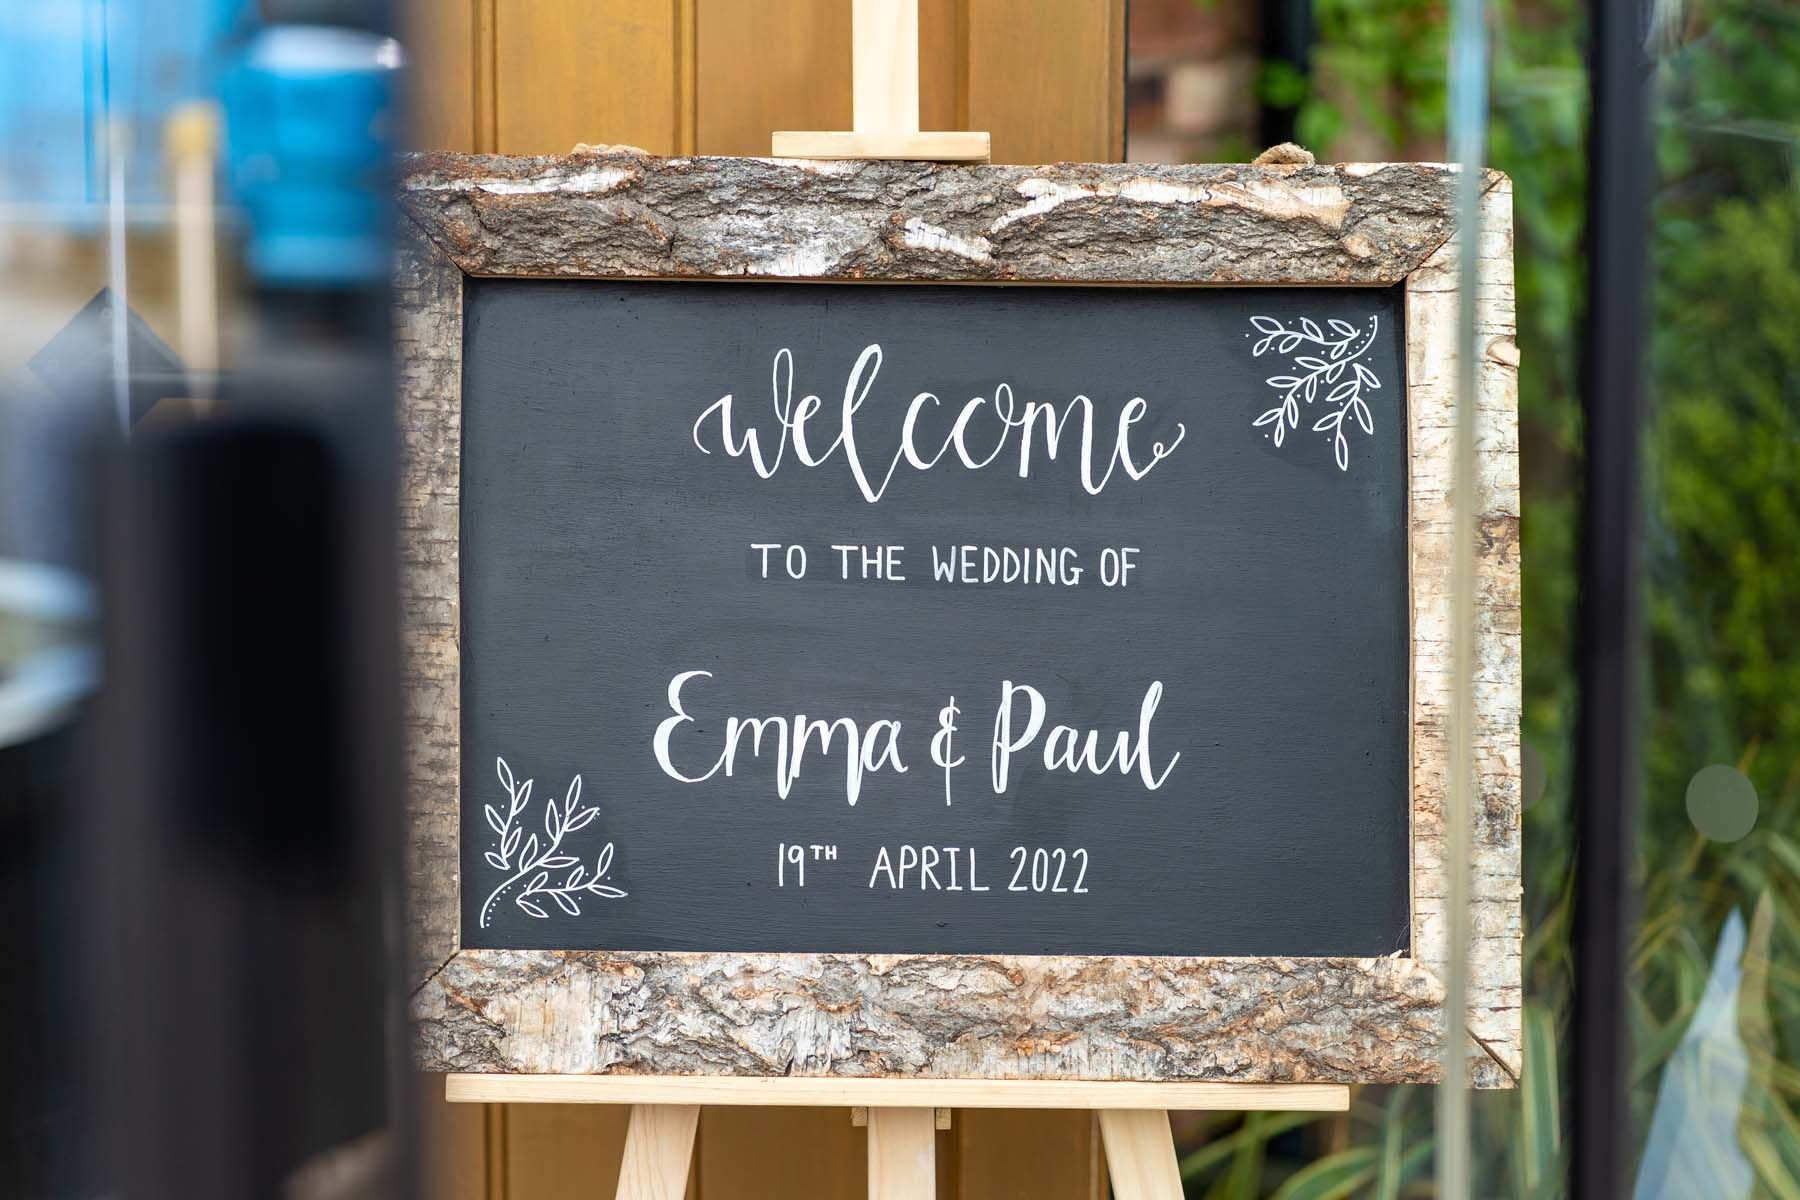 Welcome
TO THE WEDDING OF
Emma & Paul
19TH APRIL 2022